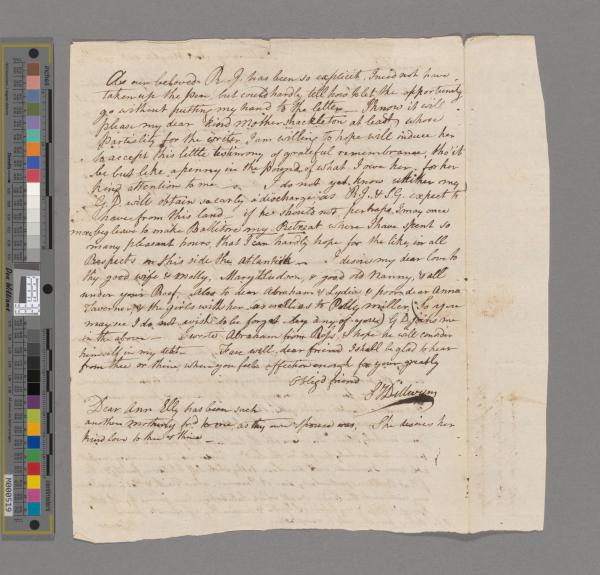 As our beloved R. J. has been so explicit, I need not have
taken up the pen, but could hardly tell how to let the opportunity
go without putting my hand to the letter — I know it will
please my dear kind Mother Shackleton at least, whose
partiality for the writer, I am willing to hope will induce her
to accept this little testimony of grateful remembrance, tho' it
be but like a penny in the Pound, of what I owe her, for her
kind attention to me — I do not yet know whether my
G. D. will obtain so early a discharge as R. J. & S. G. expect to
have from this land — if he should not, perhaps, I may once
more beg leave to make Ballitore my Retreat where I have spent so
many pleasant hours, that I can hardly hope for the like in all
Respects on this side the Atlantick — I desire my dear love to
thy good wife & Molly, Mary Hudson, & good old Nanny, & all
under your Roof. Also to dear Abraham & Lydia & poor dear Anna
Taverner, & the Girls with her as well as to Polly Miller (So you
may see I do not wish to be forgot by any of you) G D joins me
in the above — I wrote Abraham from Ross, & hope he will consider
himself in my debt — Farewell, dear friend I shall be glad to hear
from thee or thine, when you feel affection enough for your greatly
oblig'd friend
S Dillwyn
Dear Ann Elly has been such
another motherly frd to me, as thy own spouse was. She desires her
kind love to thee & thine
M000519
inches
centimetres